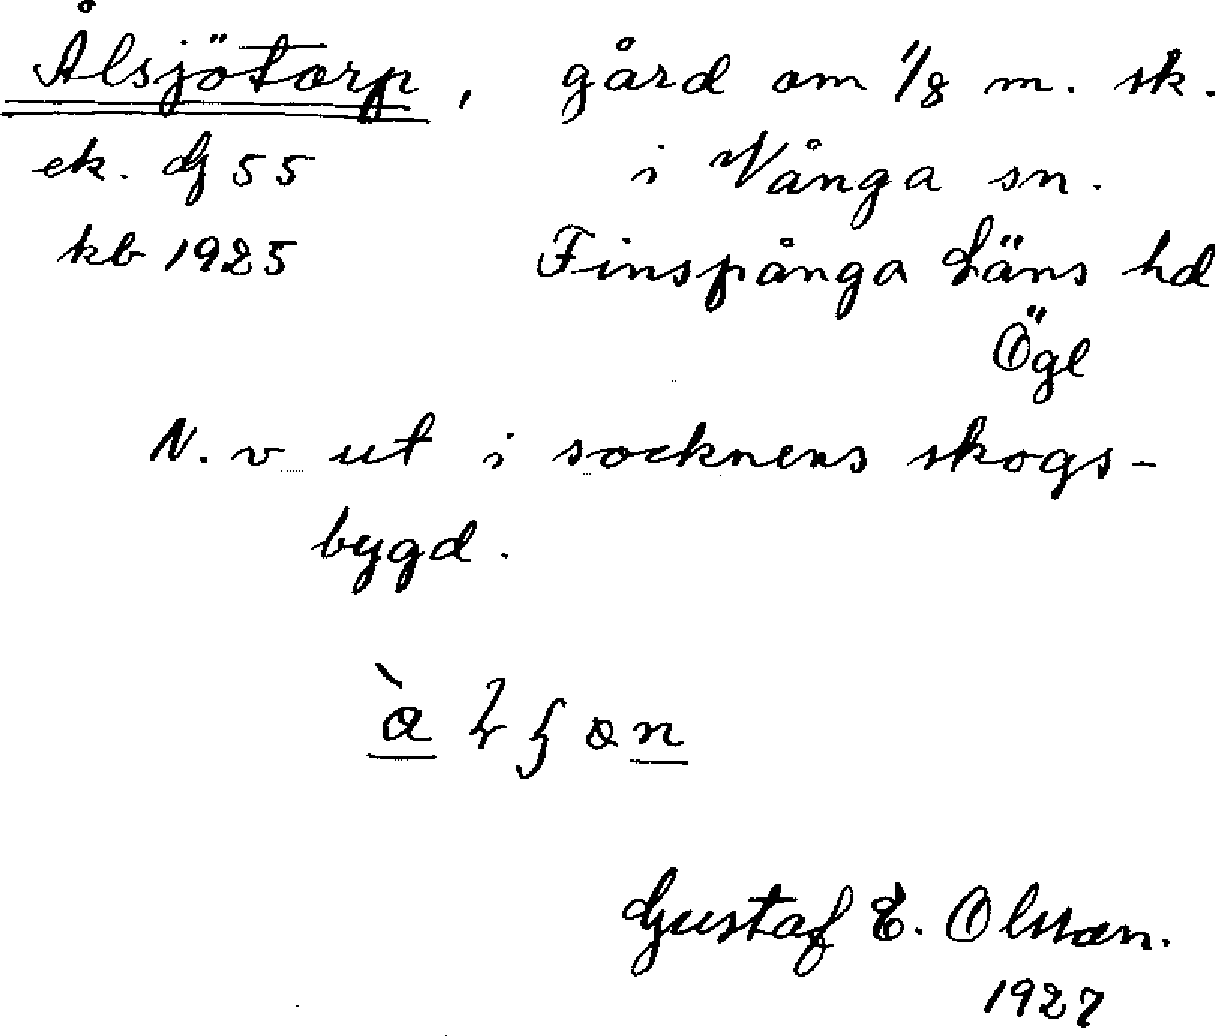 Ålsjötorp, gård om 1/8 m. sk.
ek. dj 55 i Vånga sn.
kb 1925 Finspånga läns hd
Ögl
N. v ut i socknens skogs-
bygd.
Gustaf E. Olsson.
1927